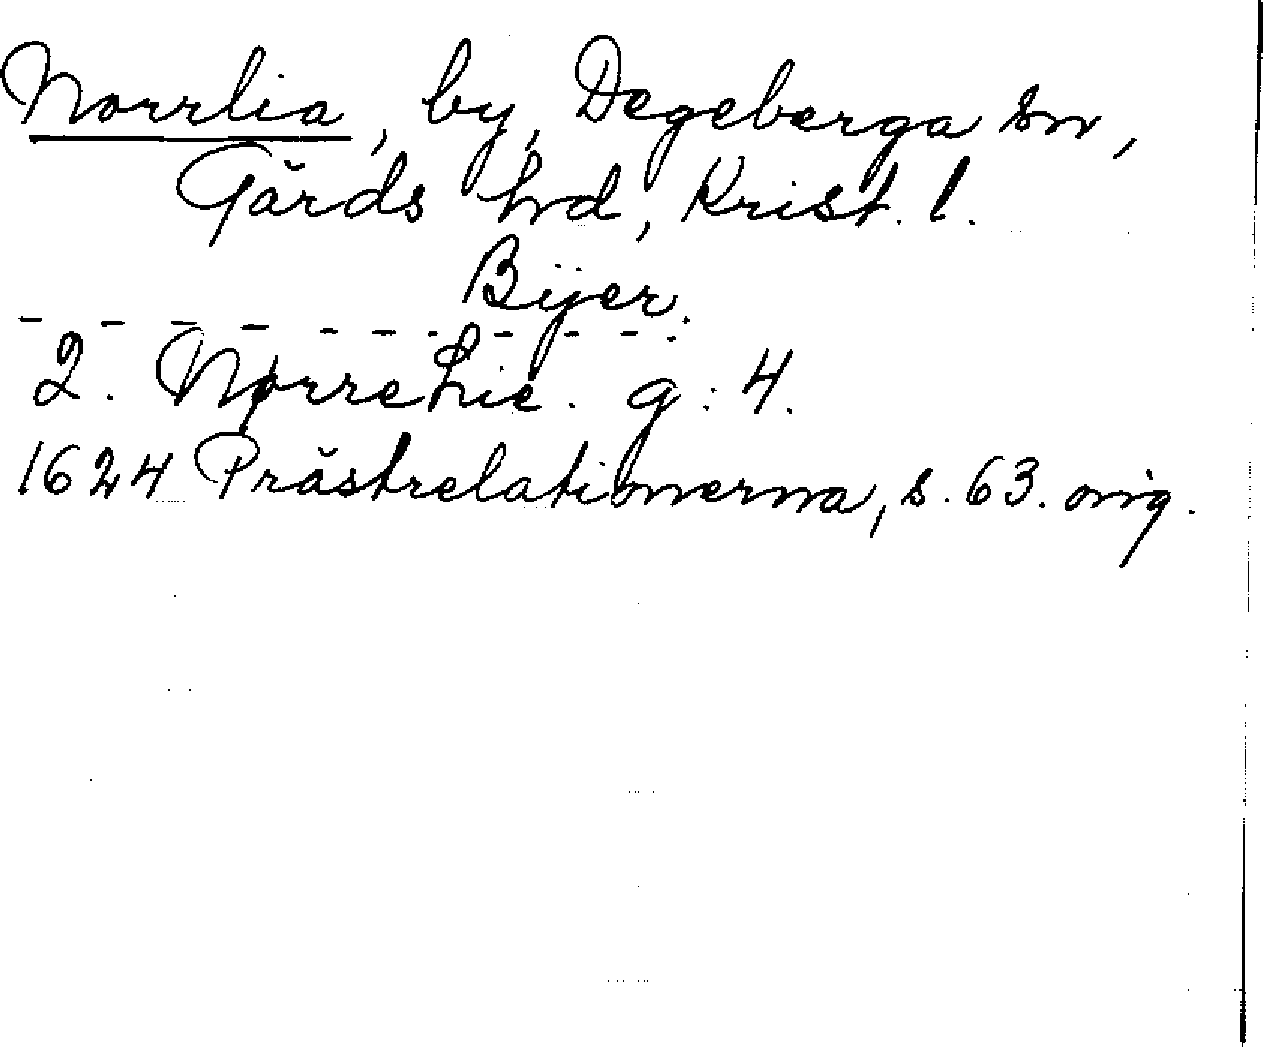 Norrlia, by, Degeberga sn,
Gärds hd, Krist. l.
Bÿer.
- - - - - - - - - -
2. Nørrehie. g: 4.
1624 Prästrelationerna, s. 63. orig.